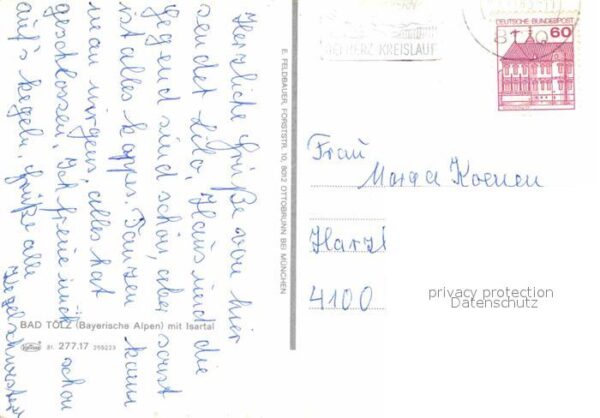 Herzliche Grüße von hier
sendet Lilo, Haus und die
Gegend sind schön, aber sonst
ist alles kappes. Tanzen kann
man nirgens, alles hat
geschlossen. Ich freue mich schon
auf's kegeln. Grüße alle
Kegelschwestern
BAD TÖLZ (Bayerische Alpen) mit Isartal
21. 277.17 255223
E. FELDBAUER, FORSTSTR. 10, 8012 OTTOBRUNN BEI MÜNCHEN
HERZ-KREISLAUF
DEUTSCHE BUNDESPOST
60
Frau
Marga Koenen
4100
privacy protection
Datenschutz